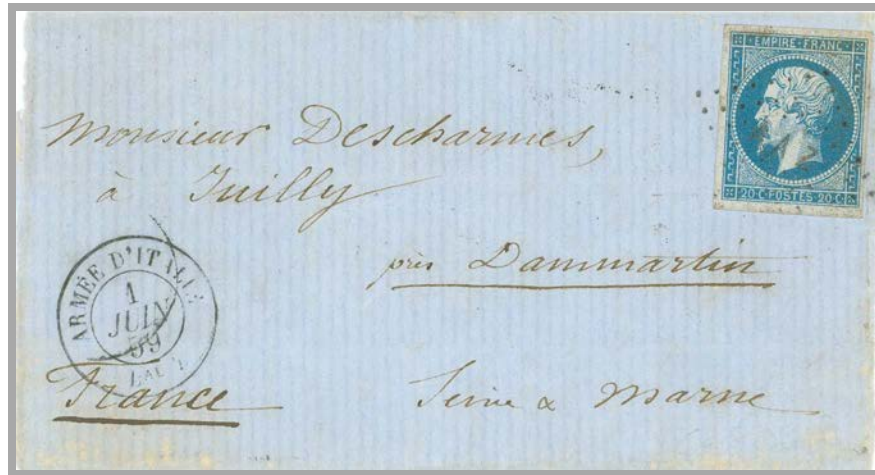 EMPIRE · FRANC ·
20 C · POSTES · 20 C
Monsieur Descharmes,
à Juilly
près Dammartin
ARMÉE D'ITALIE
1
JUIN
59
France
Seine & Marne